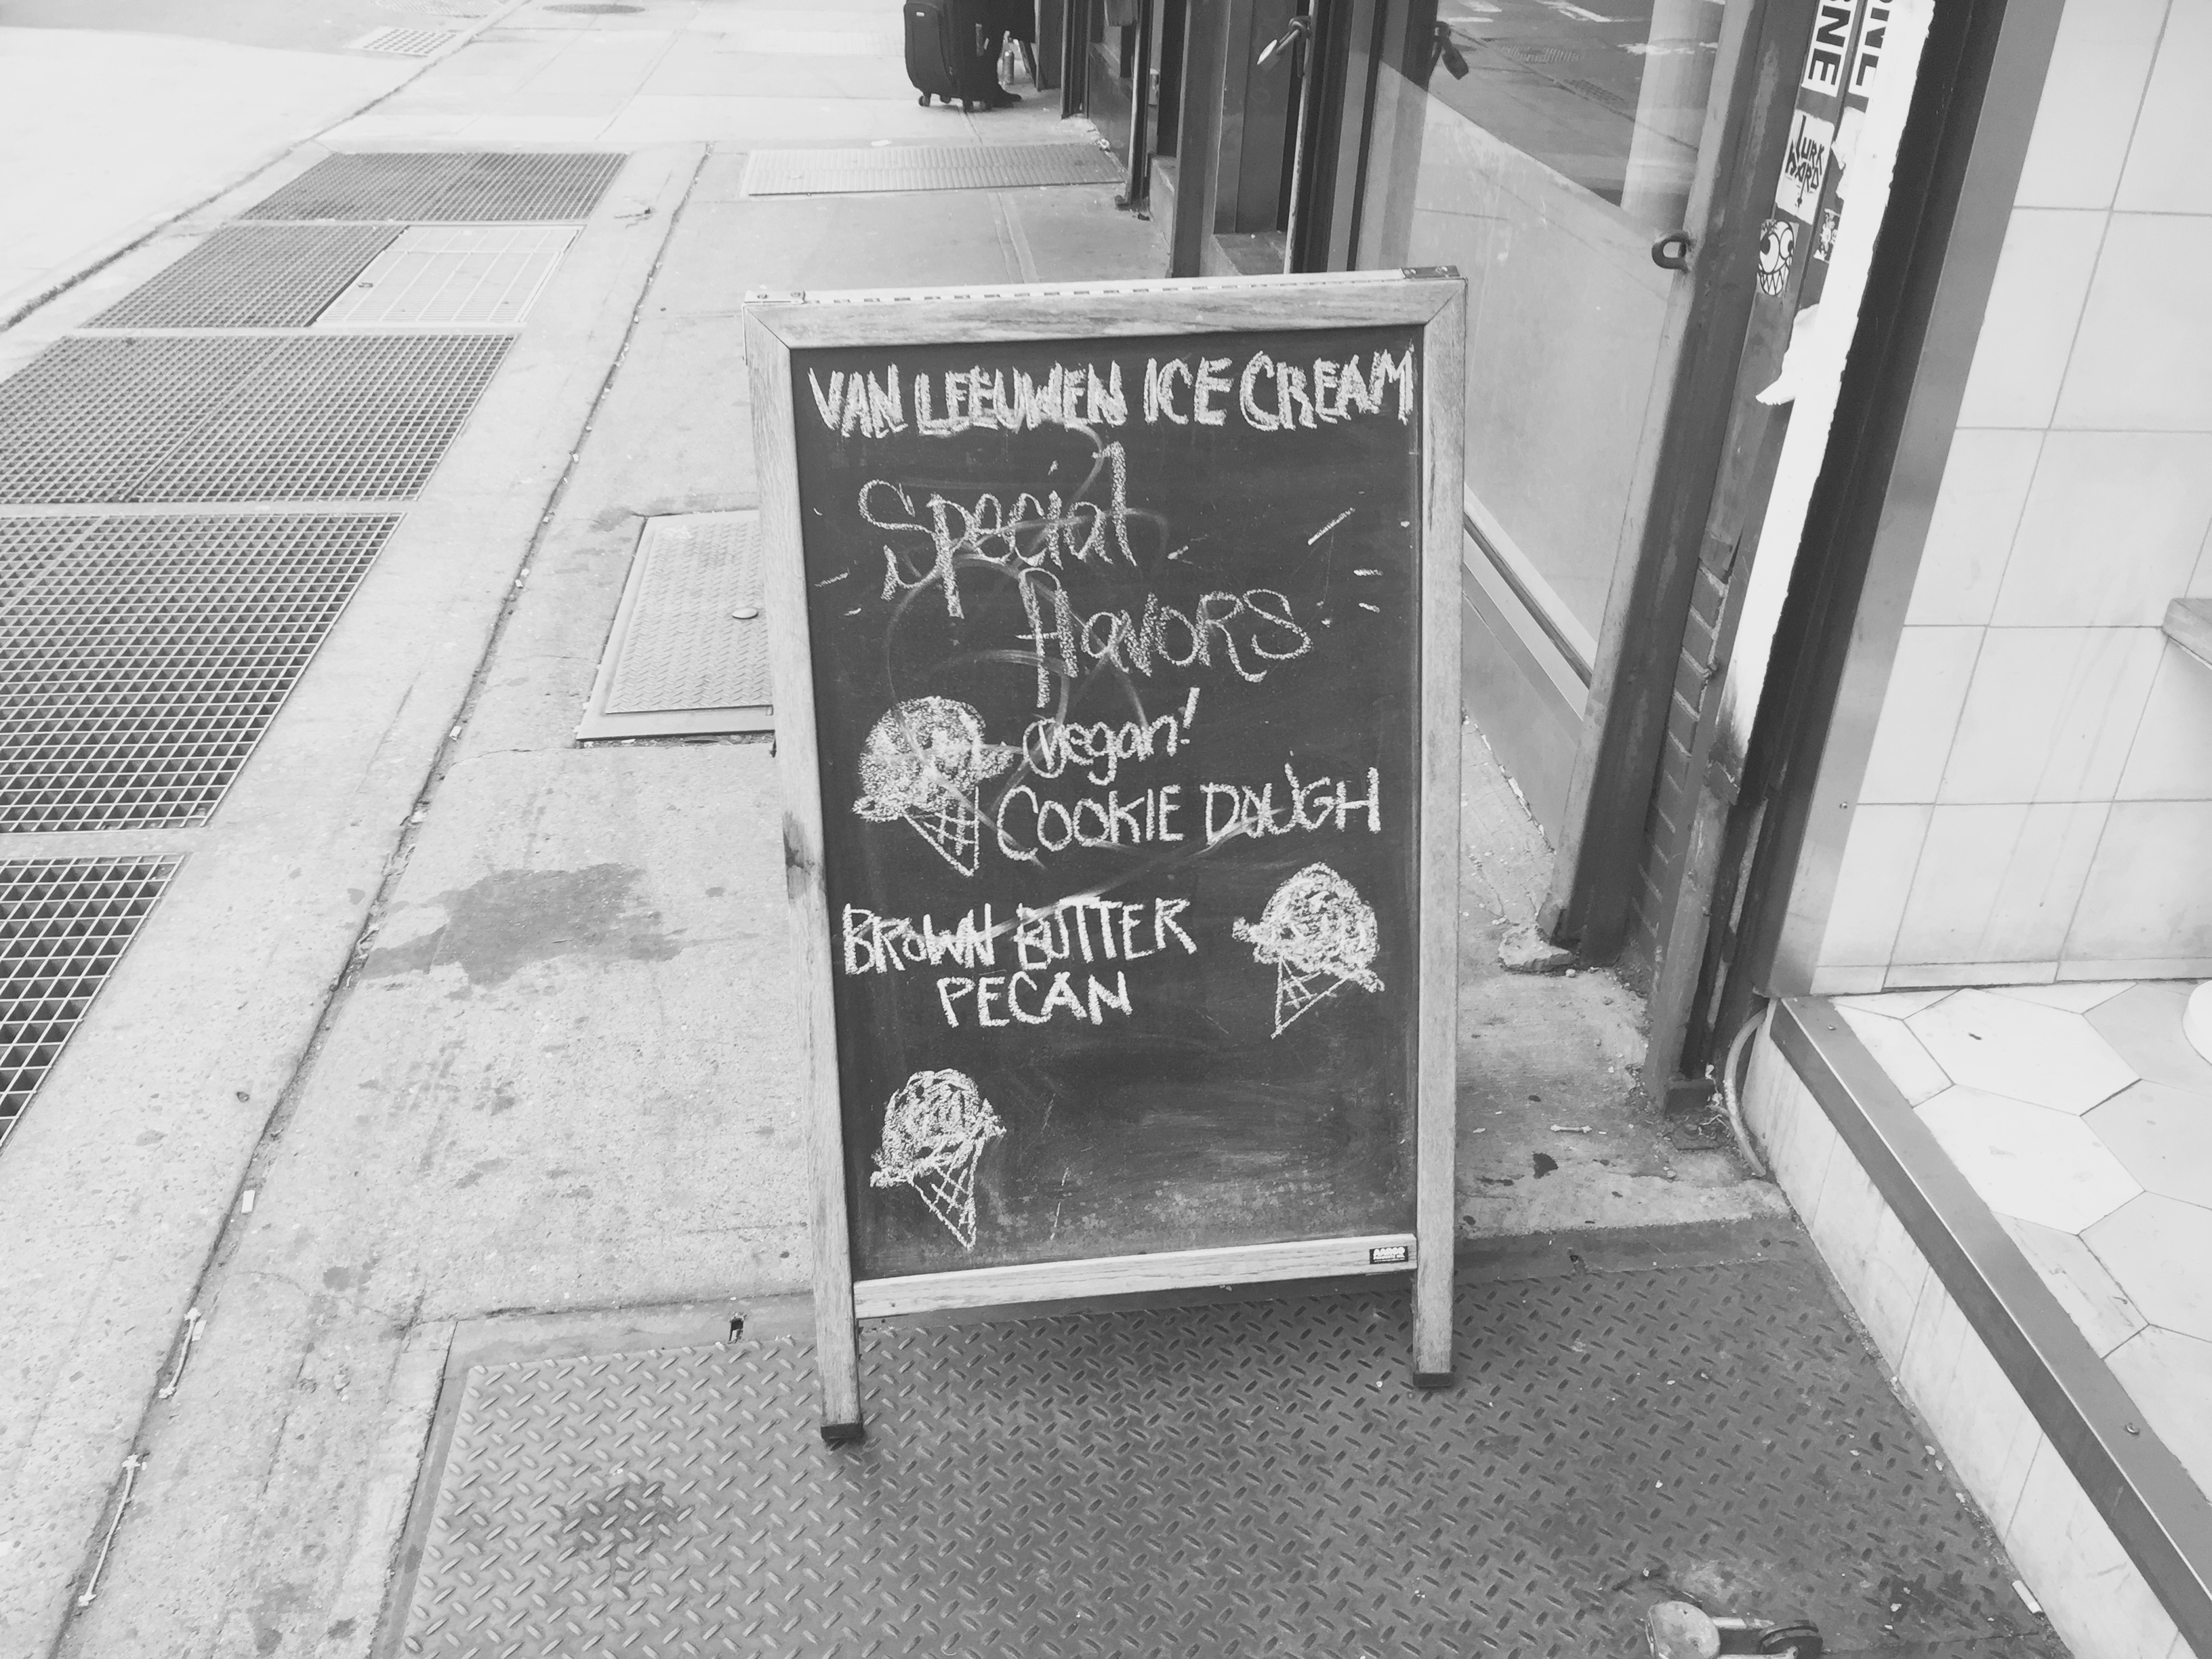 VAN LEEUWEN ICE CREAM
Special
flavors
vegan!
COOKIE DOUGH
BROWN BUTTER
PECAN
AARCO
LURK
HARD